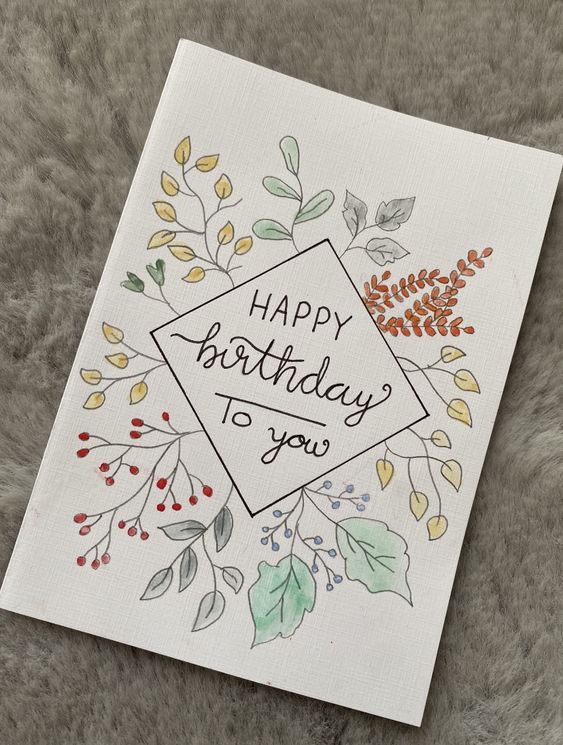 HAPPY
birthday
To you